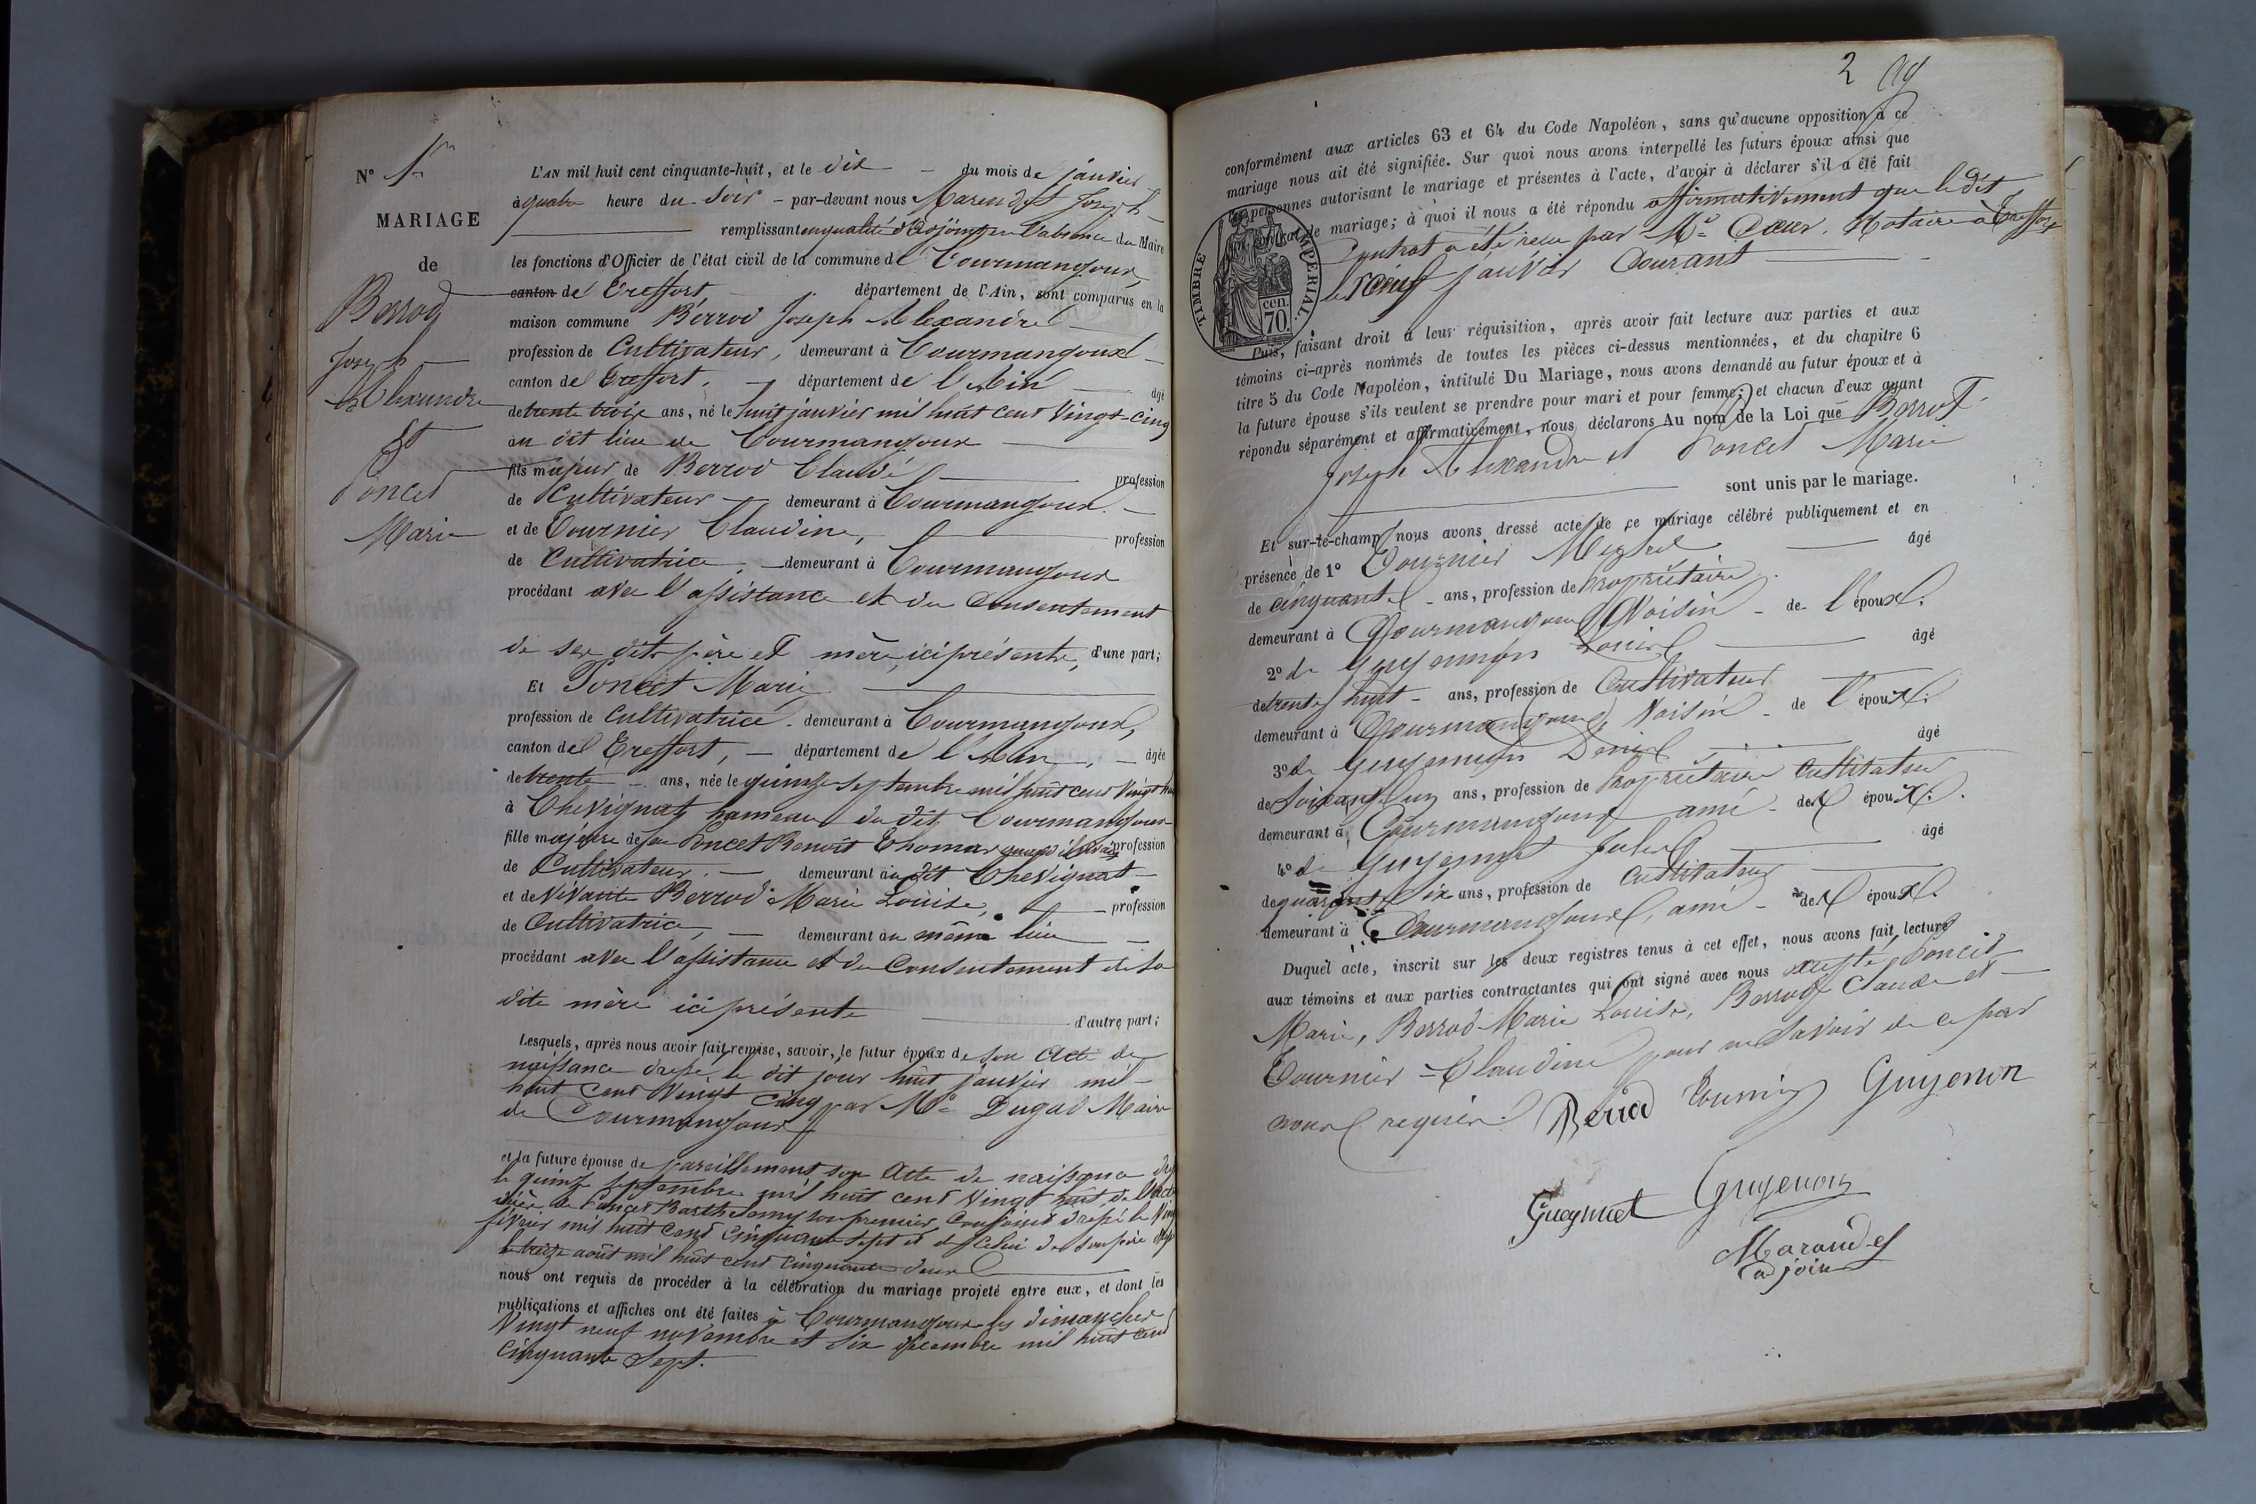 N° 1er
MARIAGE
de
Berrod
Joseph
Alexandre
Et
Poncet
Marie
L'AN mil huit cent cinquante-huit, et le dix du mois de janvier
à quatre heure du Soir par-devant nous Marandet Joseph
remplissant en qualité d'Adjoint en l'absence du Maire
les fonctions d'Officier de l'état civil de la commune de Courmangoux
canton de Treffort département de l'Ain, sont comparus en la
maison commune Berrod Joseph Alexandre
profession de Cultivateur, demeurant à Courmangoux
canton de Treffort, département de l'Ain âgé
de trente trois ans, né le huit janvier mil huit cent vingt-cinq
au dit lieu de Courmangoux
fils majeur de Berrod Claude profession
de Cultivateur demeurant à Courmangoux
et de Tournier Claudine, profession
de Cultivatrice, demeurant à Courmangoux
procédant avec l'assistance et du consentement
de ses dits père et mère, ici présents, d'une part;
Et Poncet Marie
profession de Cultivatrice demeurant à Courmangoux,
canton de Treffort, département de l'Ain, âgée
de trente ans, née le quinze septembre mil huit cent vingt huit
à Chevignat hameau du dit Courmangoux
fille majeure de feu Poncet Benoit Thomas quand il vivait profession
de Cultivateur demeurant au dit Chevignat
et de vivante Berrod Marie Louise, profession
de Cultivatrice, demeurant au même lieu
procédant avec l'assistance et du consentement de sa
dite mère ici présente d'autre part;
Lesquels, après nous avoir fait remise, savoir, le futur époux de son Acte de
naissance dressé le dit jour huit janvier mil
huit cent vingt cinq par Mr Dugad Maire
de Courmangoux
et la future épouse de pareillement son Acte de naissance
le quinze septembre mil huit cent vingt huit, de
de Poncet Barthelemy son premier, dressé le
février mil huit cent cinquante sept et de celui de son père
le treize août mil huit cent cinquante deux
nous ont requis de procéder à la célébration du mariage projeté entre eux, et dont les
publications et affiches ont été faites à Courmangoux les dimanches
vingt neuf novembre et six décembre mil huit cent
cinquante sept.
2
conformément aux articles 63 et 64 du Code Napoléon, sans qu'aucune opposition à ce
mariage nous ait été signifiée. Sur quoi nous avons interpellé les futurs époux ainsi que
les personnes autorisant le mariage et présentes à l'acte, d'avoir à déclarer s'il a été fait
un contrat de mariage; à quoi il nous a été répondu affirmativement que le dit
Contrat a été reçu par Me Notaire à Treffort
le neuf janvier Courant
TIMBRE IMPERIAL.
70 cen.
Puis, faisant droit à leur réquisition, après avoir fait lecture aux parties et aux
témoins ci-après nommés de toutes les pièces ci-dessus mentionnées, et du chapitre 6
titre 5 du Code Napoléon, intitulé Du Mariage, nous avons demandé au futur époux et à
la future épouse s'ils veulent se prendre pour mari et pour femme; et chacun d'eux ayant
répondu séparément et affirmativement, nous déclarons Au nom de la Loi que Berrod
Joseph Alexandre et Poncet Marie
sont unis par le mariage.
Et sur-le-champ nous avons dressé acte de ce mariage célébré publiquement et en
présence de 1° Tournier Michel âgé
de cinquante ans, profession de propriétaire
demeurant à Courmangoux Voisin de l'époux.
2° de Guyennon Louis âgé
de trente huit ans, profession de Cultivateur
demeurant à Courmangoux, Voisin de l'époux.
3° de Guyennon Denis âgé
de Soixante un ans, profession de Propriétaire Cultivateur
demeurant à Courmangoux ami de l'époux.
4° de Guyennet Jules âgé
de quarante Six ans, profession de Cultivateur
demeurant à Courmangoux, ami de l'époux.
Duquel acte, inscrit sur les deux registres tenus à cet effet, nous avons fait lecture
aux témoins et aux parties contractantes qui ont signé avec nous excepté Poncet
Marie, Berrod Marie Louise, Berrod Claude et
Tournier Claudine pour ne savoir de ce par
nous requis. Berrod Tournier Guyenon
Gueynnet Guyenon
Marandet
adjoint